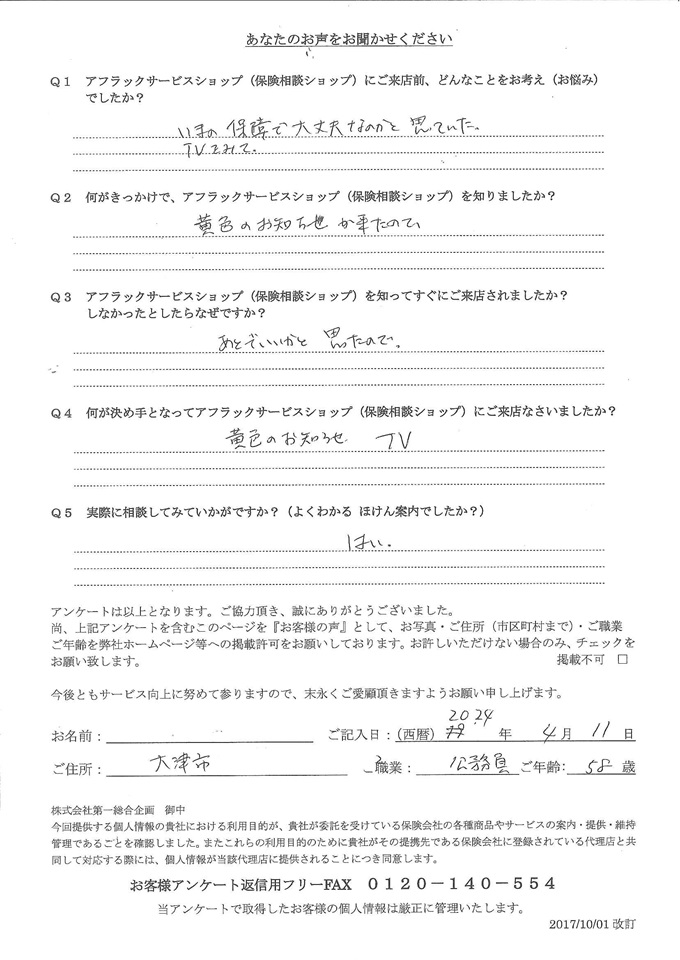 あなたのお声をお聞かせください
Q1 アフラックサービスショップ（保険相談ショップ）にご来店前、どんなことをお考え（お悩み）
でしたか？
いまの保障で大丈夫なのかと思っていた。
TVでみて。
Q2 何がきっかけで、アフラックサービスショップ（保険相談ショップ）を知りましたか？
黄色のお知らせが来たので
Q3 アフラックサービスショップ（保険相談ショップ）を知ってすぐにご来店されましたか？
しなかったとしたらなぜですか？
あとでいいかと思ったので。
Q4 何が決め手となってアフラックサービスショップ（保険相談ショップ）にご来店なさいましたか？
黄色のお知らせ TV
Q5 実際に相談してみていかがですか？（よくわかる ほけん案内でしたか？）
はい.
アンケートは以上となります。ご協力頂き、誠にありがとうございました。
尚、上記アンケートを含むこのページを『お客様の声』として、お写真・ご住所（市区町村まで）・ご職業
ご年齢を弊社ホームページ等への掲載許可をお願いしております。お許しいただけない場合のみ、チェックを
お願い致します。 掲載不可 □
今後ともサービス向上に努めて参りますので、末永くご愛顧頂きますようお願い申し上げます。
お名前： ご記入日：（西暦） 2024 年 4月 11日
ご住所： 大津市 ご職業： 公務員 ご年齢： 58 歳
株式会社第一総合企画 御中
今回提供する個人情報の貴社における利用目的が、貴社が委託を受けている保険会社の各種商品やサービスの案内・提供・維持
管理であるごとを確認しました。またこれらの利用目的のために貴社がその提携先である保険会社に登録されている代理店と共
同して対応する際には、個人情報が当該代理店に提供されることにつき同意します。
お客様アンケート返信用フリーFAX 0120－140－554
当アンケートで取得したお客様の個人情報は厳正に管理いたします。
2017/10/01 改訂